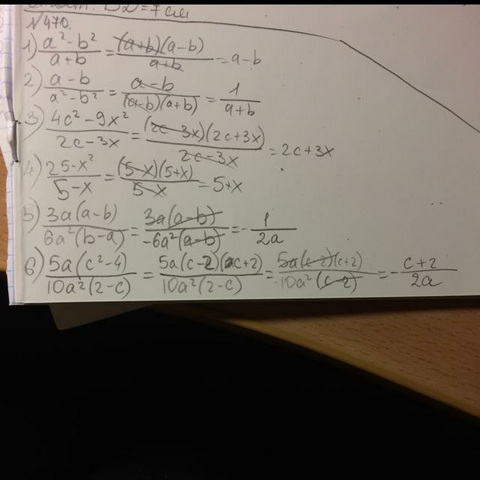 BD=7см
№470.
1) a²-b²/a+b = (a+b)(a-b)/a+b = a-b
2) a-b/a²-b² = a-b/(a-b)(a+b) = 1/a+b
3) 4c²-9x²/2c-3x = (2c-3x)(2c+3x)/2c-3x = 2c+3x
4) 25-x²/5-x = (5-x)(5+x)/5-x = 5+x
5) 3a(a-b)/6a²(b-a) = 3a(a-b)/-6a²(a-b) = -1/2a
6) 5a(c²-4)/10a²(2-c) = 5a(c-2)(c+2)/10a²(2-c) = 5a(c-2)(c+2)/-10a²(c-2) = -c+2/2a